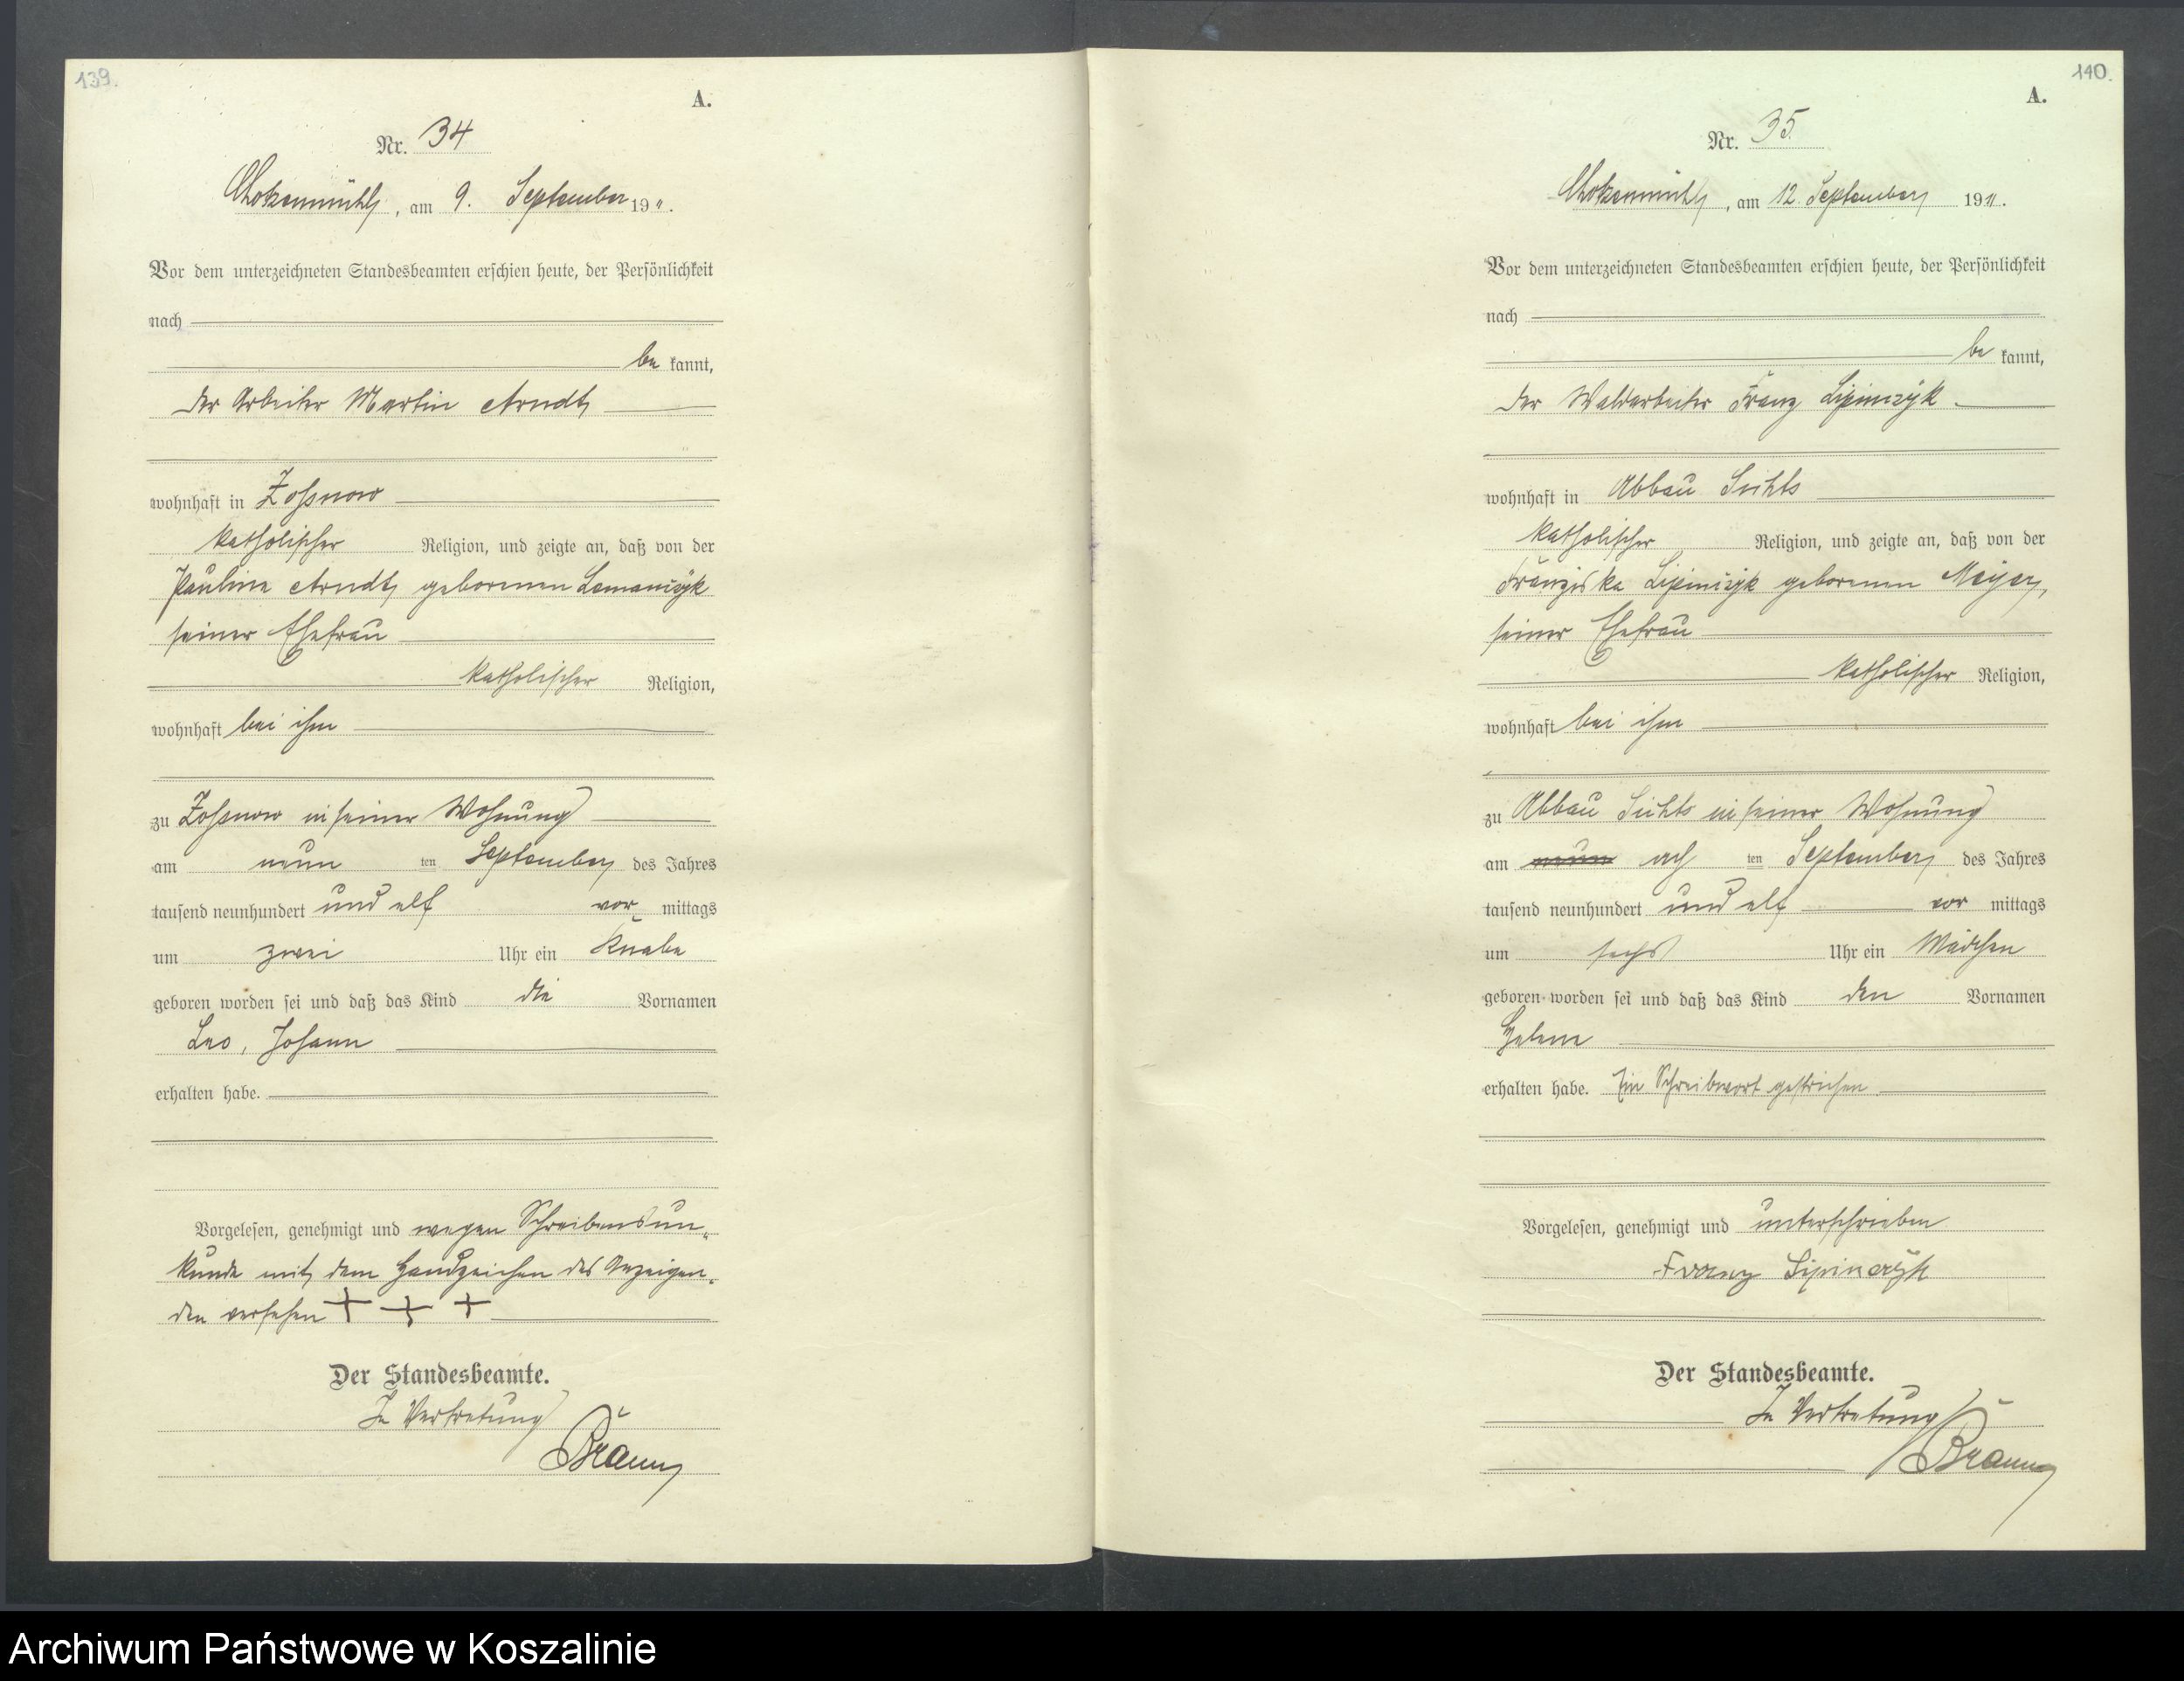 139.
A.
Nr. 34
Chotzenmühl, am 9. September 1911.
Vor dem unterzeichneten Standesbeamten erschien heute, der Persönlichkeit
nach
be kannt,
der Arbeiter Martin Arndt
wohnhaft in Zossnow
katholischer Religion, und zeigte an, daß von der
Pauline Arndt, geborenen Lemanczyk
seiner Ehefrau
katholischer Religion,
wohnhaft bei ihm
zu Zossnow in seiner Wohnung
am neun ten September des Jahres
tausend neunhundert und elf vor mittags
um zwei Uhr ein Knabe
geboren worden sei und daß das Kind die Vornamen
Leo, Johann
erhalten habe.
Vorgelesen, genehmigt und wegen Schreibensun-
kunde mit dem Handzeichen des Anzeigen-
den versehen + + +
Der Standesbeamte.
In Vertretung
Braun
140.
A.
Nr. 35
Chotzenmühl, am 12. September 1911.
Vor dem unterzeichneten Standesbeamten erschien heute, der Persönlichkeit
nach
be kannt,
der Waldarbeiter Franz Lipinczyk
wohnhaft in Abbau Sichts
katholischer Religion, und zeigte an, daß von der
Franziska Lipinczyk geborenen Meyer,
seiner Ehefrau
katholischer Religion,
wohnhaft bei ihm
zu Abbau Sichts in seiner Wohnung
am neun ach ten September des Jahres
tausend neunhundert und elf vor mittags
um sechs Uhr ein Mädchen
geboren worden sei und daß das Kind den Vornamen
Helene
erhalten habe. Ein Schreibwort gestrichen
Vorgelesen, genehmigt und unterschrieben
Franz Lipinczyk
Der Standesbeamte.
In Vertretung
Braun
Archiwum Państwowe w Koszalinie